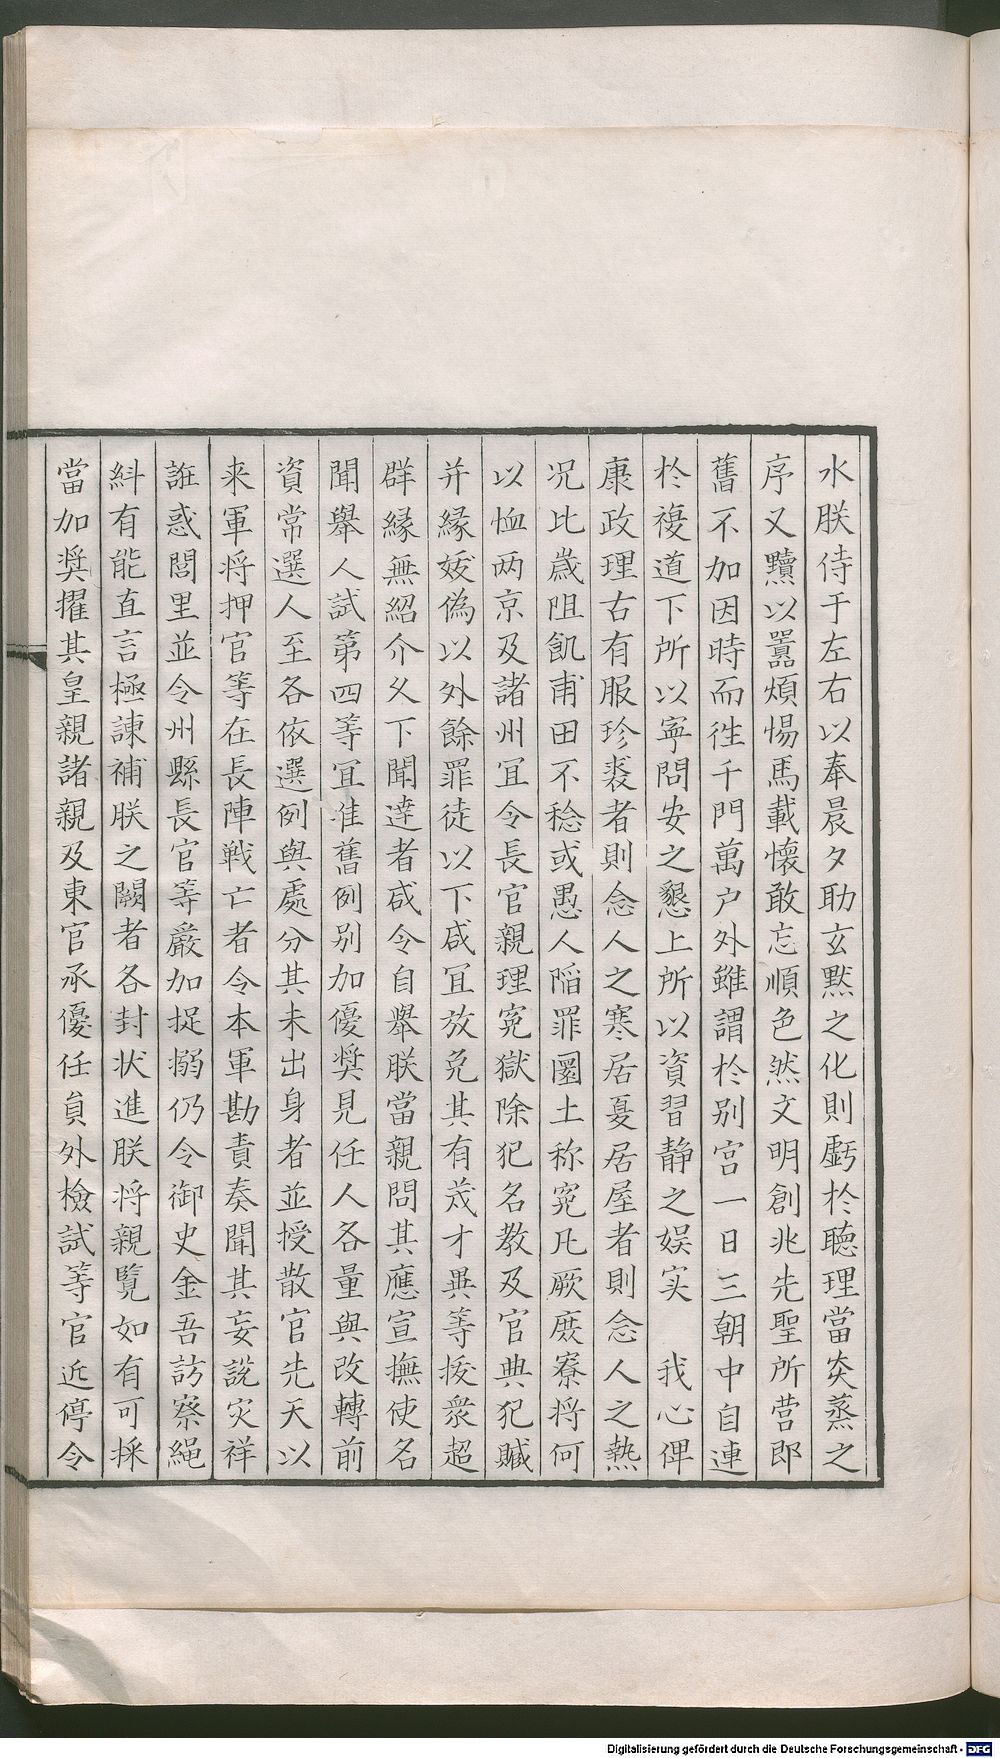 水朕侍于左右以奉晨夕助玄默之化則虧扵聴理當炎蒸之
序又黷以嚚煩惕焉載懷敢忘順色然文明創兆先聖所营郎
舊不加因時而徃千門萬户外雖謂扵别宫一日三朝中自連
扵複道下所以寜問安之懇上所以資習静之娱实　我心俾
康政理古有服珍裘者則念人之寒居夏屋者則念人之熱
况比嵗阻飢甫田不稔或愚人陷罪圜土称寃凡厥庶寮将何
以恤两京及諸州冝令長官親理寃獄除犯名教及官典犯贓
并縁妖偽以外餘罪徒以下咸冝放免其有茂才異等拔衆超
群縁無紹介久下聞達者咸令自舉朕當親問其應宣撫使名
聞舉人試第四等冝准舊例别加優奬見任人各量與改轉前
資常選人至各依選例與處分其未出身者並授散官先天以
来軍将押官等在長陣戦亡者令本軍勘責奏聞其妄説灾祥
誑惑閭里並令州縣長官等嚴加捉搦仍令御史金吾訪察繩
糾有能直言極諌補朕之闕者各封状進朕将親覧如有可採
當加奬擢其皇親諸親及東官承優任貟外檢試等官近停令
Digitalisierung gefördert durch die Deutsche Forschungsgemeinschaft - DFG